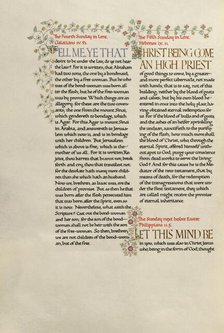 The Fourth Sunday in Lent.
Galatians iv. 21.
TELL ME YE THAT
desire to be under the law, do ye not hear
the law? For it is written, that Abraham
had two sons, the one by a bond-maid,
the other by a free-woman. But he who
was of the bond-woman was born after
the flesh; but he of the free-woman
was by promise. Which things are an
allegory: for these are the two covenants;
the one from the mount Sinai,
which gendereth to bondage, which is
Agar. For this Agar is mount Sinai
in Arabia, and answereth to Jerusalem
which now is, and is in bondage
with her children. But Jerusalem
which is above is free; which is the
mother of us all. For it is written, Rejoice,
thou barren that bearest not; break
forth and cry, thou that travailest not:
for the desolate hath many more children
than she which hath an husband.
Now we, brethren, as Isaac was, are the
children of promise. But as then he that
was born after the flesh persecuted him
that was born after the Spirit, even so
it is now. Nevertheless, what saith the
Scripture? Cast out the bond-woman
and her son; for the son of the bond-woman
shall not be heir with the son
of the free-woman. So then, brethren, we
are not children of the bond-woman,
but of the free.
The Fifth Sunday in Lent.
Hebrews ix. 11.
CHRIST BEING COME
AN HIGH PRIEST
of good things to come, by a greater
and more perfect tabernacle, not made
with hands; that is to say, not of this
building; neither by the blood of goats
and calves; but by his own blood he
entered in once into the holy place, having
obtained eternal redemption for
us. For if the blood of bulls and of goats
and the ashes of an heifer sprinkling
the unclean, sanctifieth to the purifying
of the flesh; how much more shall
the blood of Christ, who through the
eternal Spirit offered himself without
spot to God, purge your conscience
from dead works to serve the living
God? And for this cause he is the Mediator
of the new testament, that by
means of death, for the redemption of
the transgressions that were under
the first testament, they which are
called might receive the promise of
eternal inheritance.
The Sunday next before Easter.
Philippians ii. 5.
LET THIS MIND BE
in you, which was also in Christ Jesus:
who, being in the form of God, thought